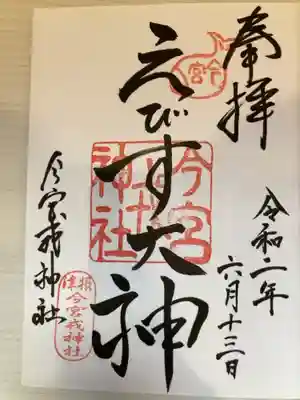 奉拝
令和二年
六月十三日
えびす大神
今宮戎神社
今宮
戎
神社
摂津
今宮戎神社